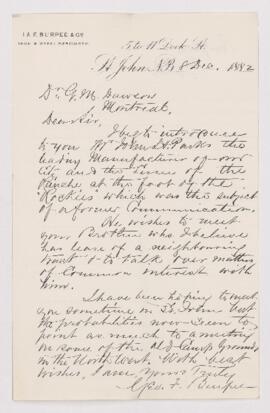 I. & F. BURPEE & CO.
IRON & STEEL MERCHANTS
St John N.B. 8 Dec. 1882
Dr G. M. Dawson
Montreal
Dear Sir,
I beg to introduce
to you Mr John H. Parks the
leading Manufacturer of our
City and the lessee of the
Ranche at the foot of the
Rockies which was the subject
of a former Communication.
He wishes to meet
your Brother who I believe
has lease of a neighbouring
tract & to talk over matters
of Common interest with
him.
I have been hoping to meet
you sometime in St. John but
the probabilities now seem to
point as much to a meeting
on some of the old Camp Grounds
in the North West. With best
wishes, I am, Yours Truly
Geo. F. Burpee